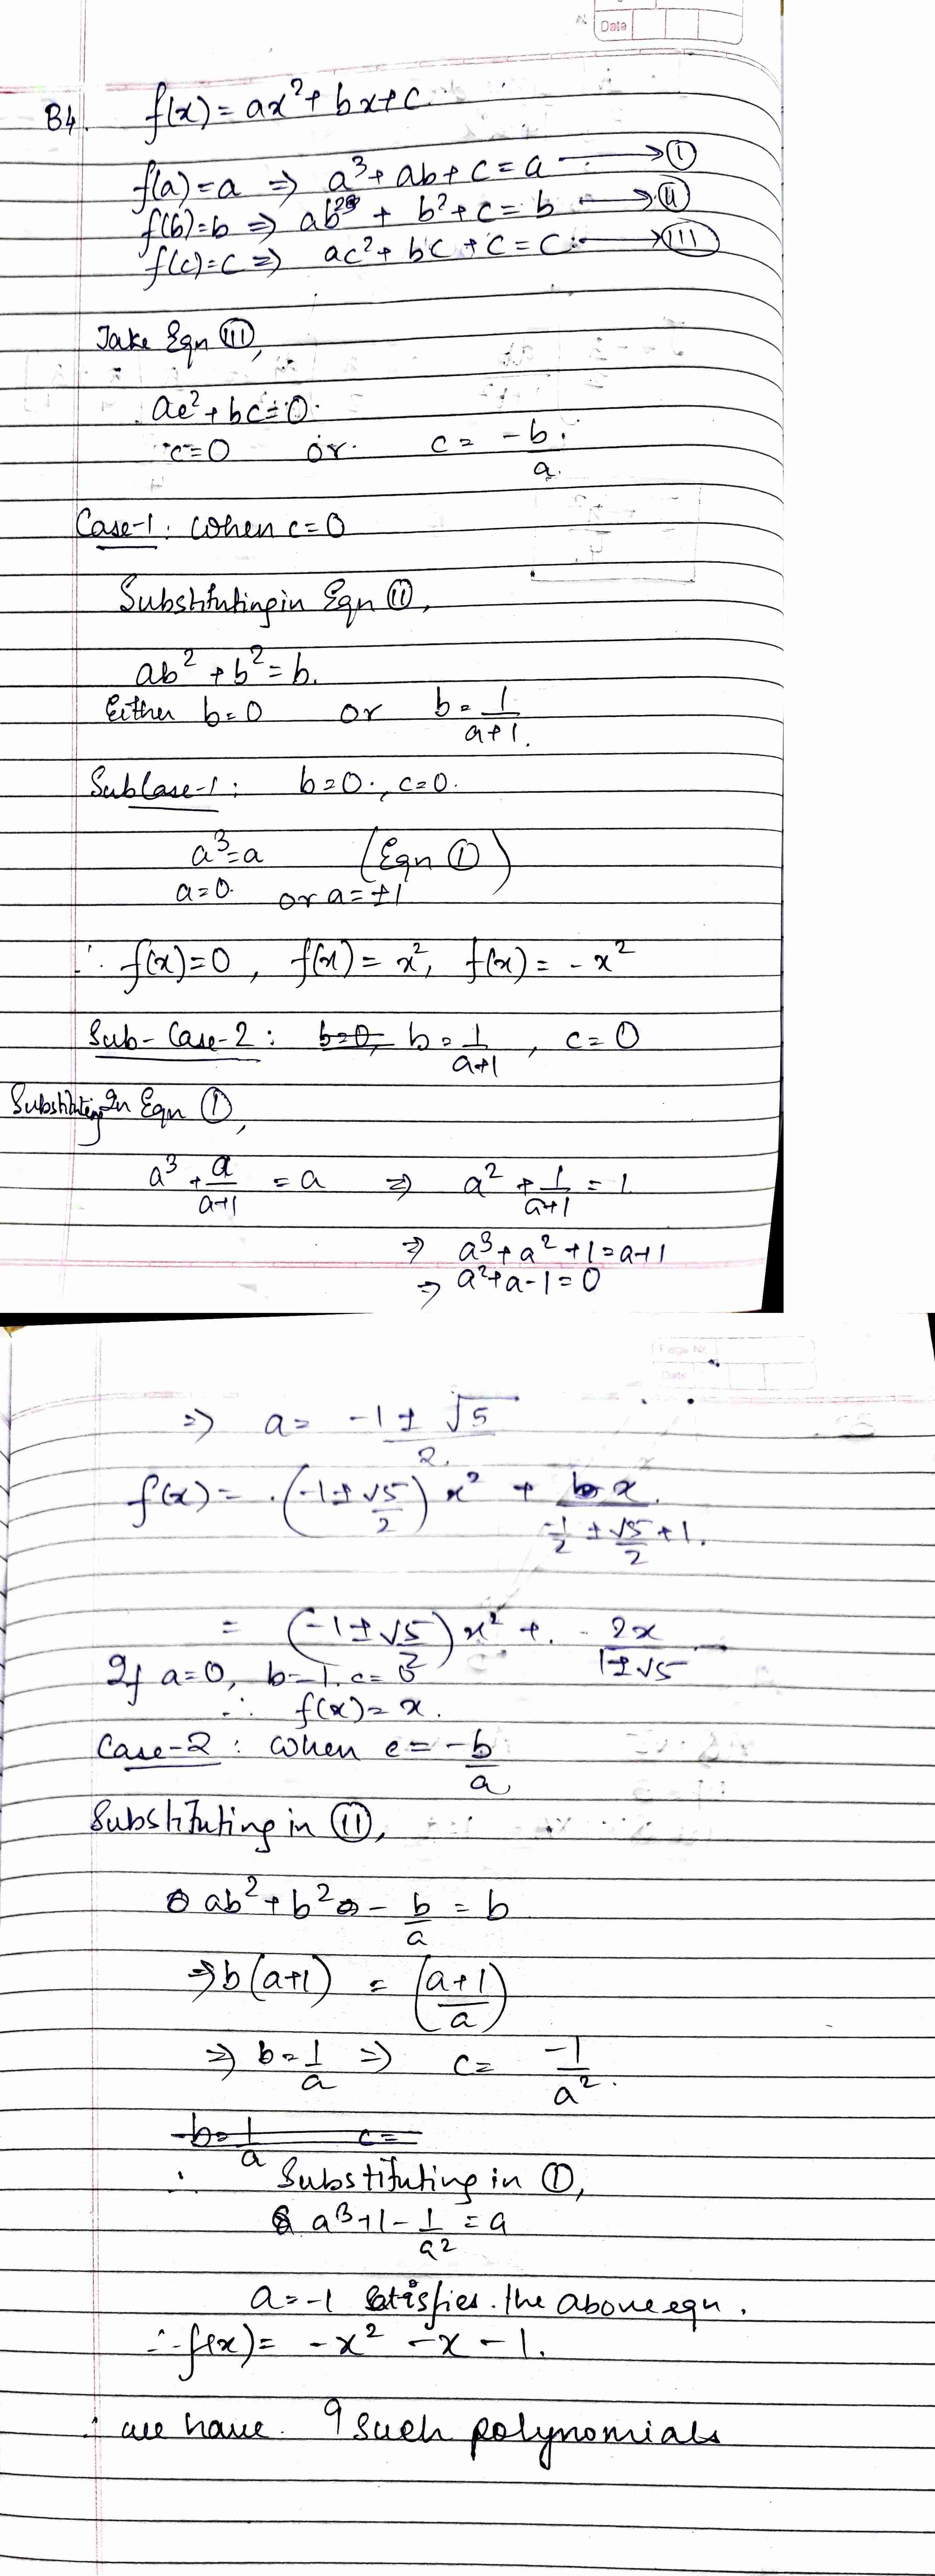 Date
B4. f(x) = ax² + bx + c.
f(a) = a ⇒ a³ + ab + c = a ⟶ Ⓘ
f(b) = b ⇒ ab² + b² + c = b ⟶ Ⓘⓘ
f(c) = c ⇒ ac² + bc + c = c ⟶ (III)
Take Eqn (III),
ac² + bc = 0.
c = 0 or c = -b/a.
Case-1: When c = 0
Substituting in Eqn (II),
ab² + b² = b.
Either b = 0 or b = 1/(a+1).
Subcase-1: b = 0, c = 0.
a³ = a (Eqn (I))
a = 0 or a = ±1
∴ f(x) = 0, f(x) = x², f(x) = -x²
Sub-Case-2: b=0, b = 1/(a+1), c = 0
Substituting In Eqn (I),
a³ + a/(a+1) = a ⇒ a² + 1/(a+1) = 1
⇒ a³ + a² + 1 = a + 1
⇒ a² + a - 1 = 0
Page No.
Date
⇒ a = (-1 ± √5)/2.
f(x) = (-1 ± √5/2) x² + x/(-1/2 ± √5/2 + 1).
= (-1 ± √5/2) x² + 2x/(1 ± √5)
If a = 0, b = 1, c = 0
∴ f(x) = x.
Case-2: When c = -b/a
Substituting in (II),
ab² + b² - b/a = b
⇒ b(a+1) = (a+1/a)
⇒ b = 1/a ⇒ c = -1/a².
b = 1/a c =
∴ Substituting in (I),
a³ + 1 - 1/a² = a
a = -1 satisfies the above eqn.
∴ f(x) = -x² - x - 1.
∴ we have 9 such polynomials